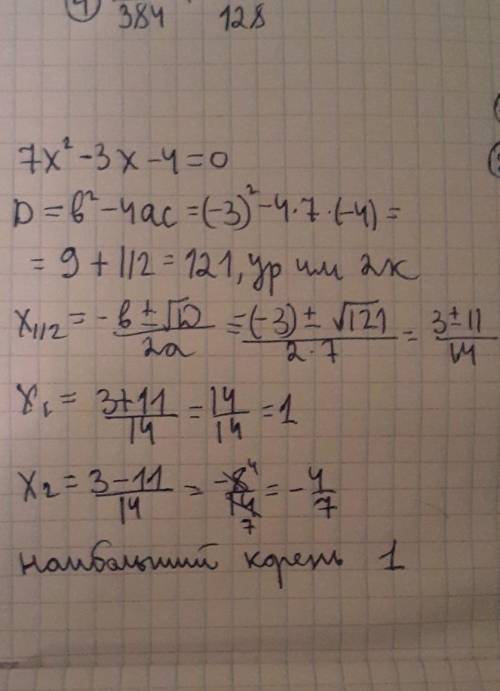 4 384 128
7x² - 3x - 4 = 0
D = b² - 4ac = (-3)² - 4·7·(-4) =
= 9 + 112 = 121, ур им 2к
x₁/₂ = -b ± √D / 2a = (-3) ± √121 / 2·7 = 3 ± 11 / 14
x₁ = 3+11 / 14 = 14 / 14 = 1
x₂ = 3-11 / 14 = -8 4 / 14 7 = - 4 / 7
наибольший корень 1